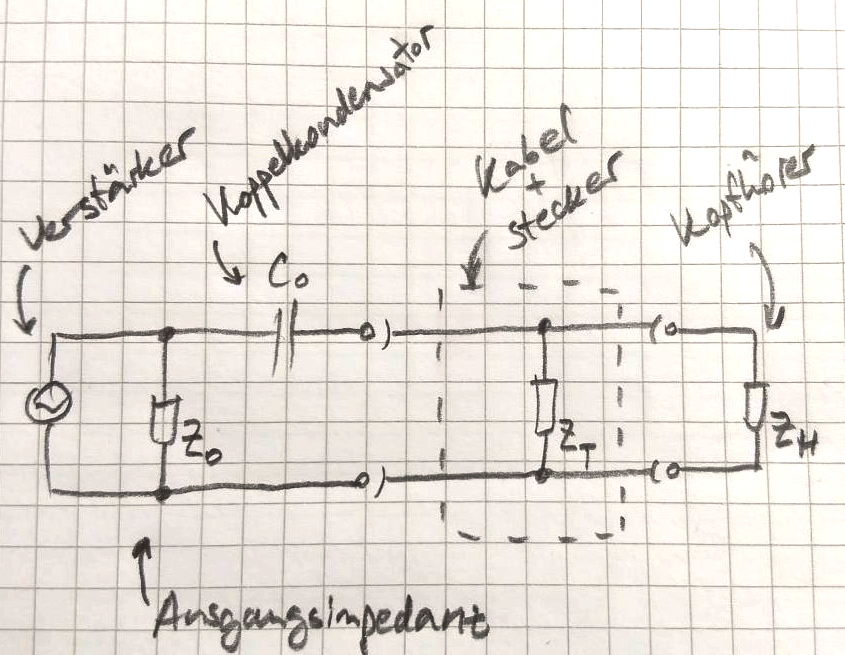 Verstärker
Koppelkondensator
Kabel
+
stecker
Kopfhörer
C₀
Z₀
Z_T
Z_H
Ausgangsimpedanz